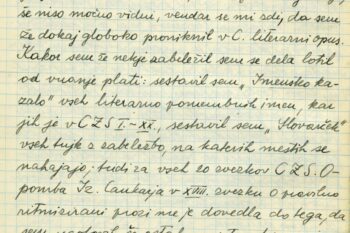 še niso močno vidni, vendar se mi zdi, da sem
že dokaj globoko proniknil v C. literarni opus.
Kakor sem že nekje zabeležil sem se dela lotil
od vnanje plati: sestavil sem „Imensko ka-
zalo" vseh literarno pomembnih imen, kar
jih je v CZS I.-XX., sestavil sem „Slovarček"
vseh tujk z zabeležbo, na katerih mestih se
nahajajo; tudi za vseh 20 zvezkov CZS. O-
pomba Iz. Cankarja v XVIII. zvezku o pravilno
ritmizirani prozi me je dovedla do tega, da